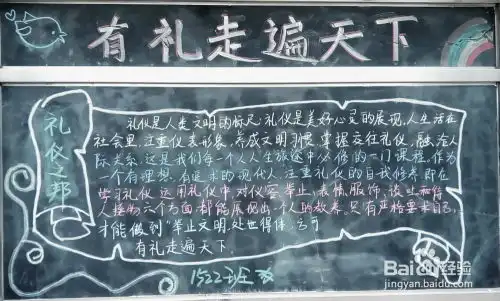 有礼走遍天下
礼仪之邦
礼仪是人类文明的标尺，礼仪是美好心灵的展现，人生活在
社会里，注重仪表形象，养成文明习惯，掌握交往礼仪，融洽人
际关系，这是我们每一个人人生旅途中必修的一门课程。作为
一个有理想、有追求的现代人，注重礼仪的自我修养，即在
学习礼仪、运用礼仪中对仪容、举止、表情、服饰、谈吐和待
人接物六个方面，都能展现出一个人的教养。只有严格要求自己，
才能做到"举止文明，处世得体，方可
有礼走遍天下。
1522班
Baidu经验
jingyan.baidu.com